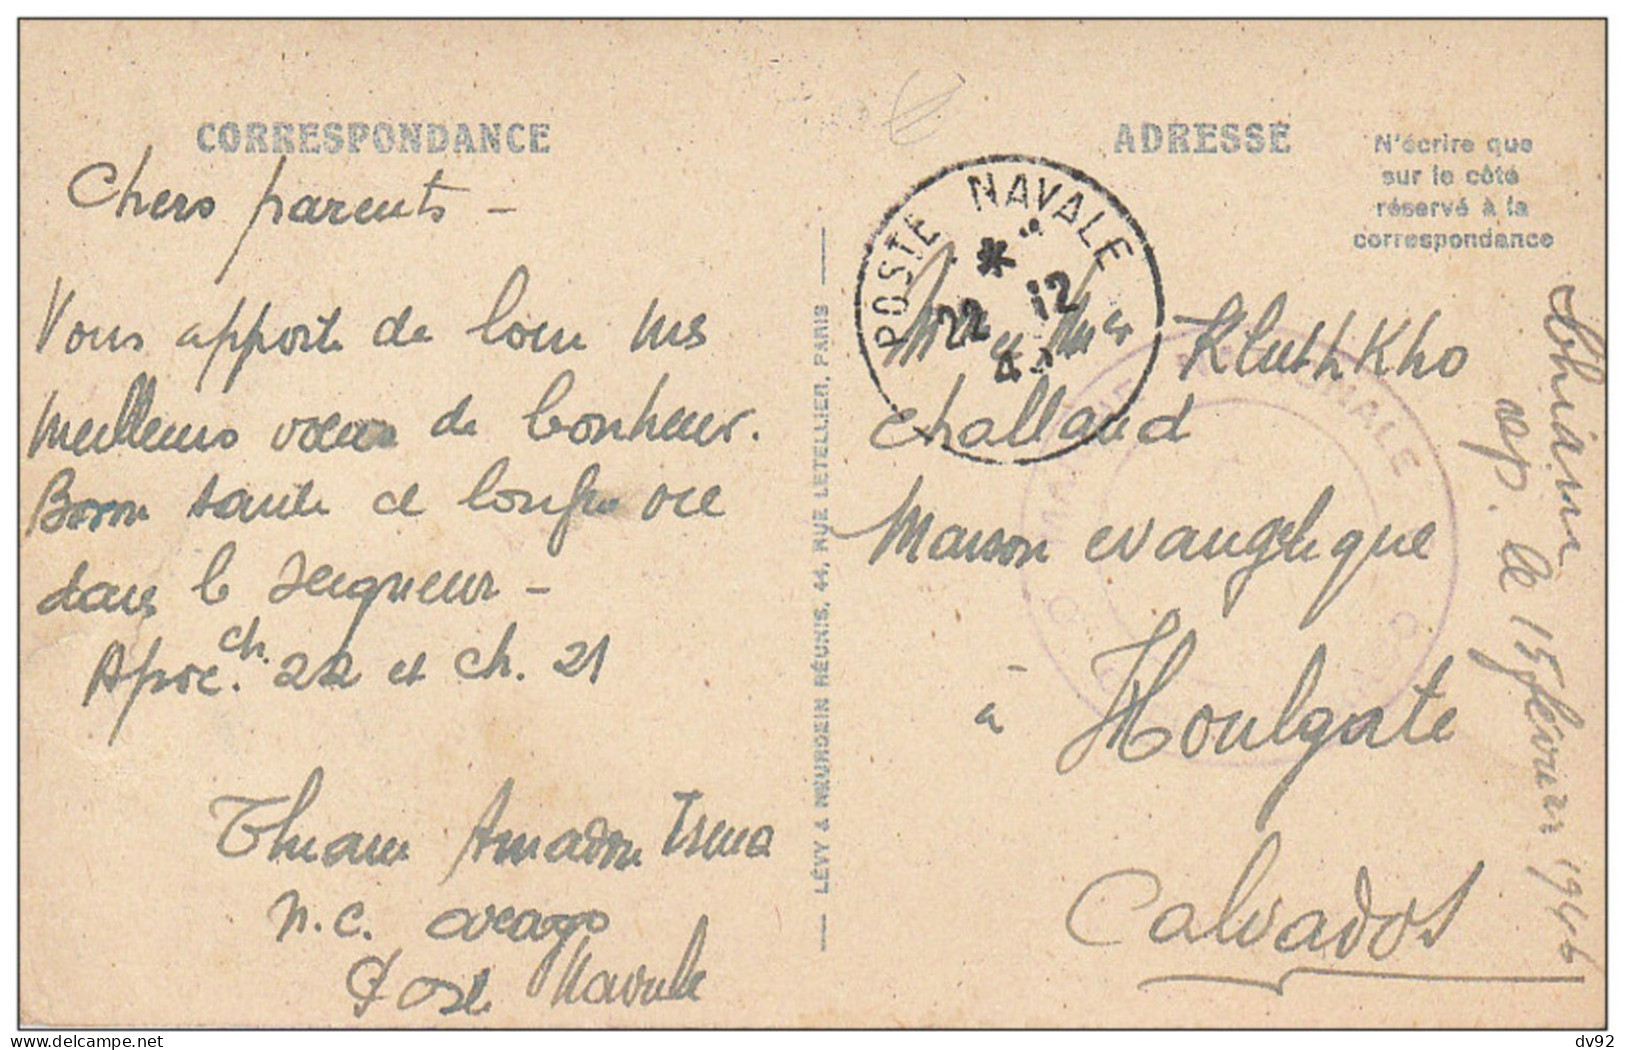 CORRESPONDANCE
Chers parents -
Vous apporte de loin mes
meilleurs vœux de bonheur.
Bonne santé et longue vie
dans le Seigneur -
Apoc. ch. 22 et ch. 21
Thiam Amadou
N.C. 
Poste Navale
LÉVY & NEURDEIN RÉUNIS, 44, RUE LETELLIER, PARIS
ADRESSE
N'écrire que
sur le côté
réservé à la
correspondance
POSTE NAVALE
*
22 12
Challand
Maison evangelique
à Houlgate
Calvados
rep. le 15 février 1946
dv92